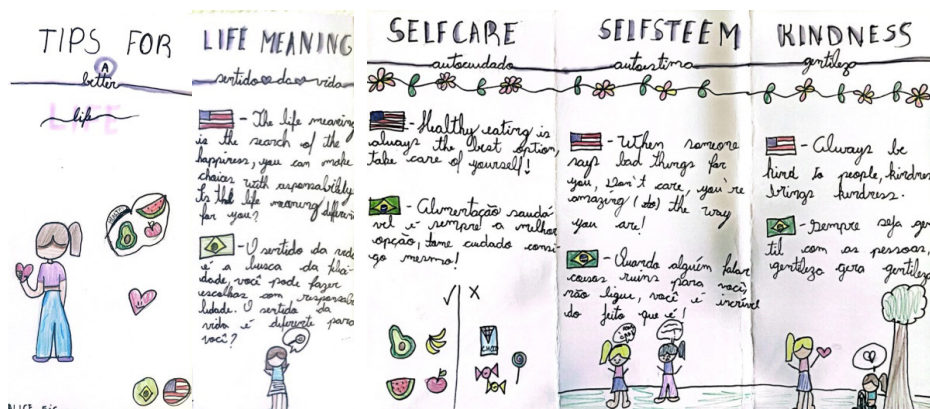 TIPS FOR
A
better
life
LIFE MEANING
sentido da vida
- The life meaning
is the search of the
happiness, you can make
choices with responsability.
Is the life meaning different
for you?
- O sentido da vida
é a busca da felici-
dade, você pode fazer
escolhas com responsabi-
lidade. O sentido da
vida é diferente para
você?
SELFCARE
autocuidado
- Healthy eating is
always the best option,
take care of yourself!
- Alimentação saudá-
vel é sempre a melhor
opção, tome cuidado consi-
go mesmo!
✓ X
SELFSTEEM
autoestima
- When someone
says bad things for
you, Don't care, you're
amazing (do) the way
you are!
- Quando alguém falar
coisas ruins para você,
não ligue, você é incrível
do jeito que é!
KINDNESS
gentileza
- Always be
kind to people, kindness
brings kindness.
- Sempre seja gen
til com as pessoas,
gentileza gera gentileza
ALICE